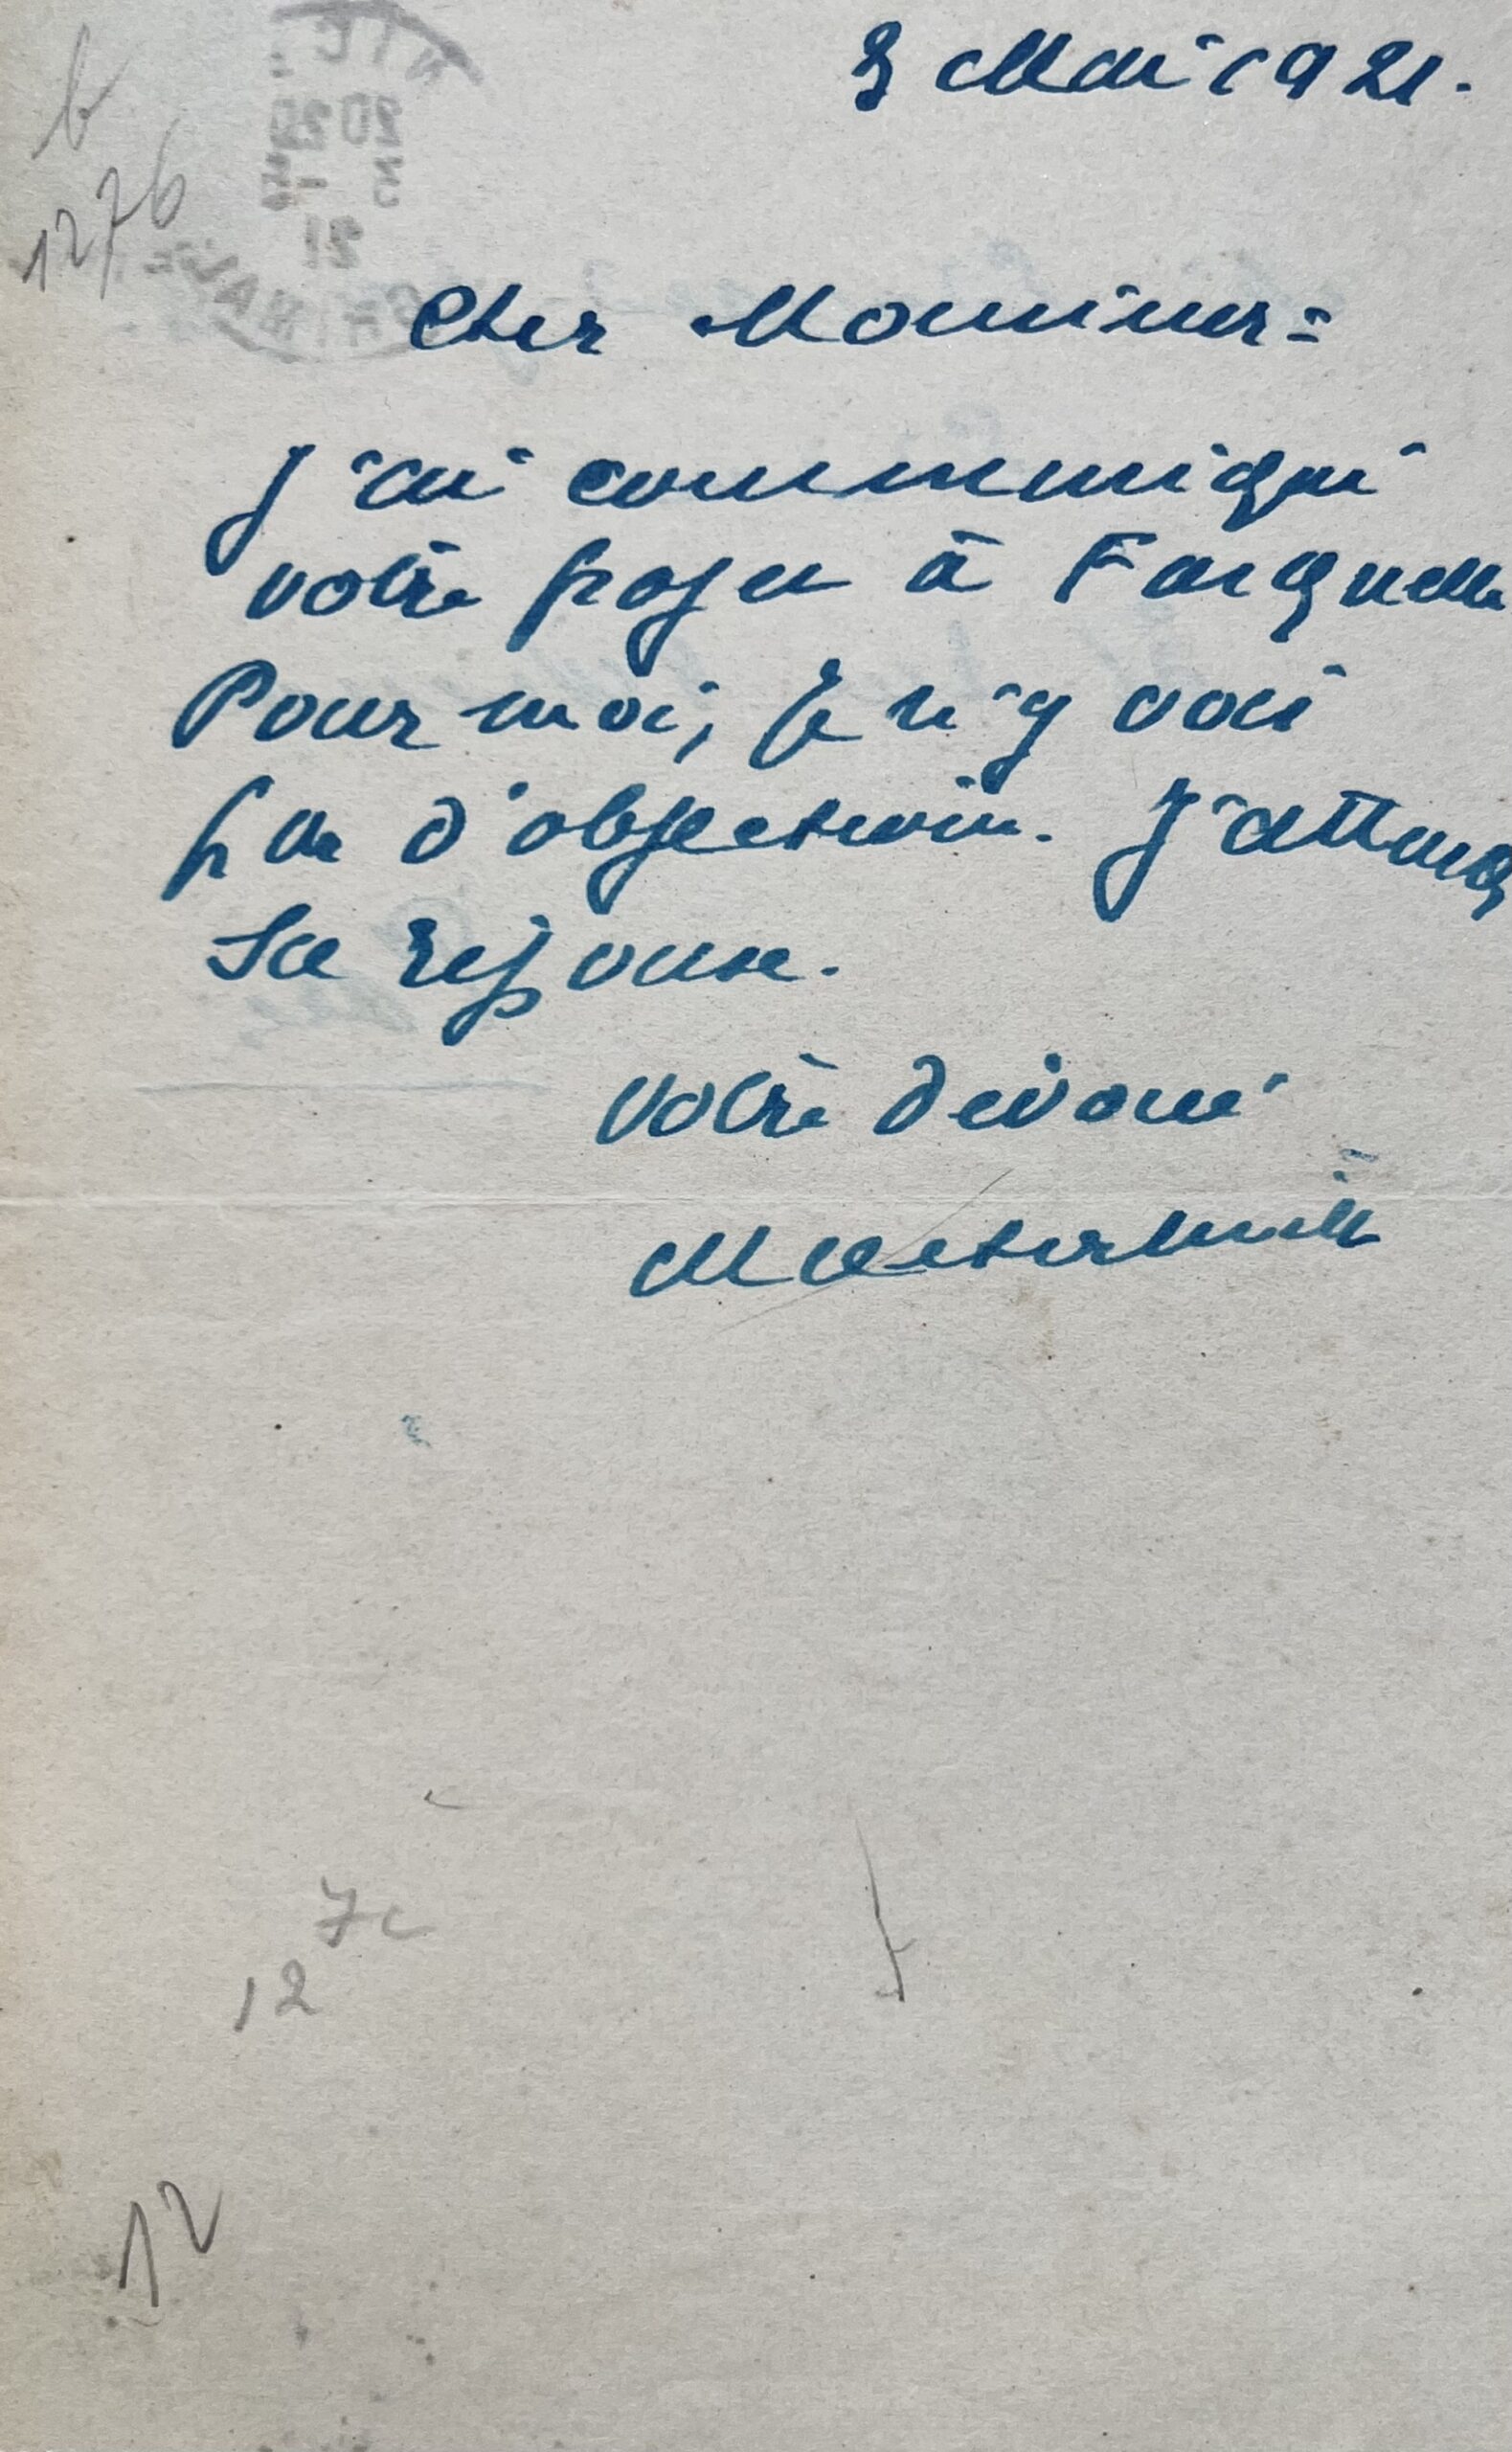 b
1276
3 Mai 1921.
Cher Monsieur =
J'ai communiqué
votre projet à Fasquelle
Pour moi, je n'y vois
pas d'objection. J'attends
sa réponse.
Votre dévoué
Maeterlinck
7c
12
12